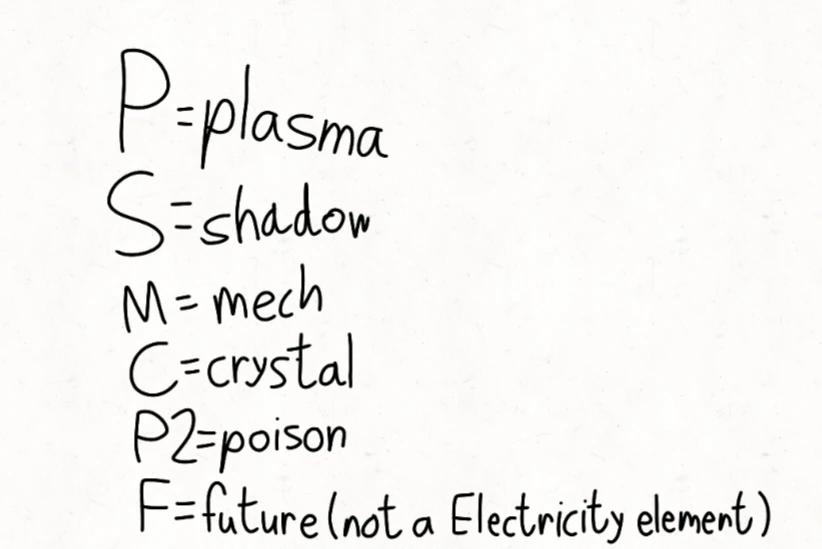 P=plasma
S=shadow
M=mech
C=crystal
P2=poison
F=future(not a Electricity element)